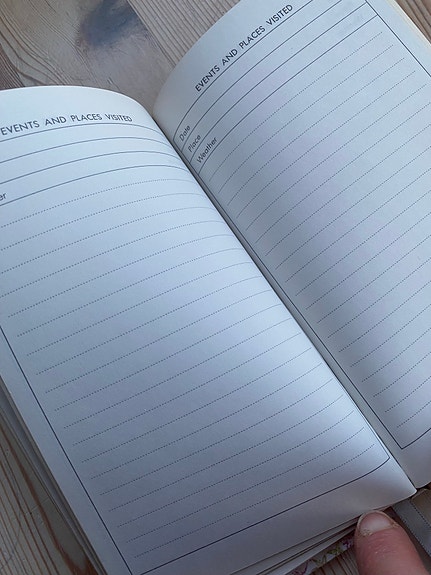 EVENTS AND PLACES VISITED
er
EVENTS AND PLACES VISITED
Date
Place
Weather